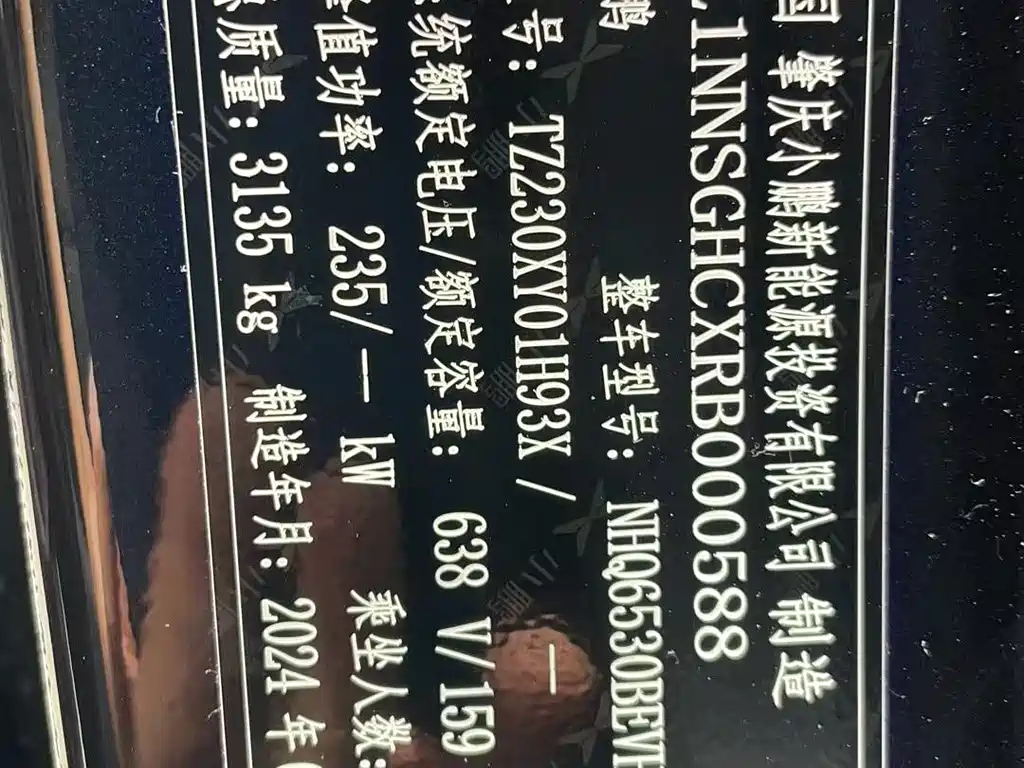 国 肇庆小鹏新能源投资有限公司 制造
1NNSGHCXRB000588
鹏 整车型号: NHQ6530BEV
号: TZ230XY01H93X / —
统额定电压/额定容量: 638 V/159
值功率: 235/— kW 乘坐人数:
质量: 3135 kg 制造年月: 2024 年